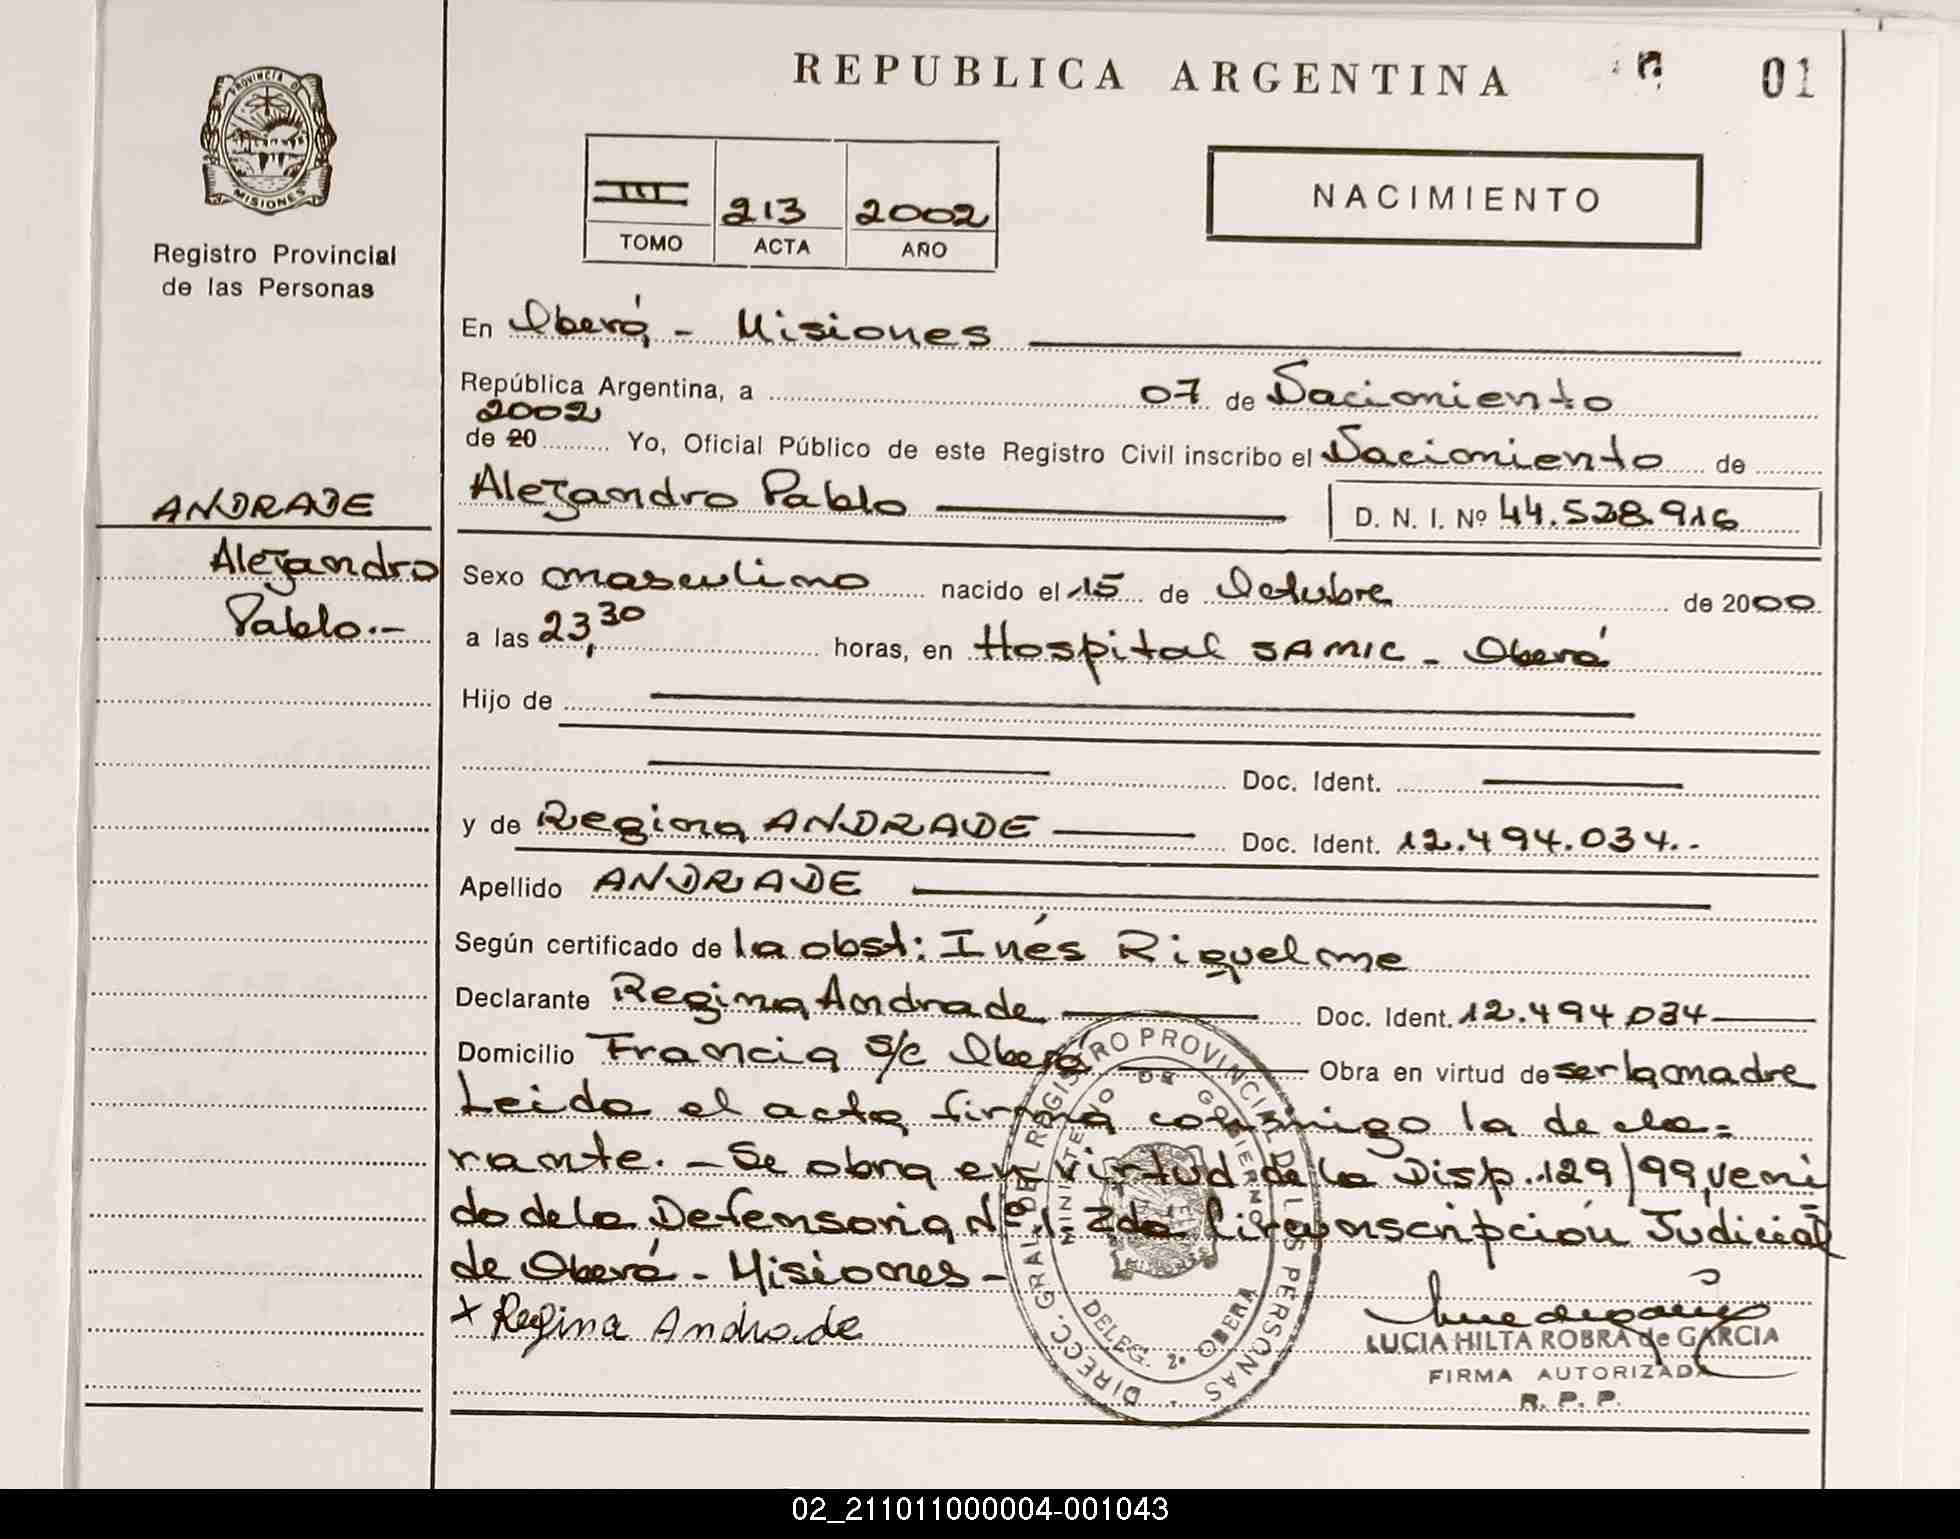 REPUBLICA ARGENTINA
01
PROVINCIA DE
MISIONES
Registro Provincial
de las Personas
III 213 2002
TOMO ACTA AÑO
NACIMIENTO
En Oberá, - Misiones
República Argentina, a 07 de Nacimiento
2002
de 20 Yo, Oficial Público de este Registro Civil inscribo el Nacimiento de
Alejandro Pablo D. N. I. Nº 44.528.916
ANDRADE
Alejandro
Pablo.-
Sexo masculino nacido el 15 de Octubre de 2000
a las 23,30 horas, en Hospital SAMIC - Oberá
Hijo de
Doc. Ident.
y de Regina ANDRADE Doc. Ident. 12.494.034..
Apellido ANDRADE
Según certificado de la obst: Inés Riquelme
Declarante Regina Andrade Doc. Ident. 12.494.034
Domicilio Francia s/c Oberá Obra en virtud de ser la madre
Leida el acta firma conmigo la decla=
rante. - Se obra en virtud de la Disp. 129/99, veni
do de la Defensoria Nº 1. 2da Circunscripción Judicial
de Oberá - Misiones -
x Regina Andrade
DIRECC. GRAL. DEL REGISTRO PROVINCIAL DE LAS PERSONAS
MINISTERIO DE GOBIERNO
DELEG. 2º OBERA
LUCIA HILTA ROBRA de GARCIA
FIRMA AUTORIZADA
R. P. P.
02_211011000004-001043